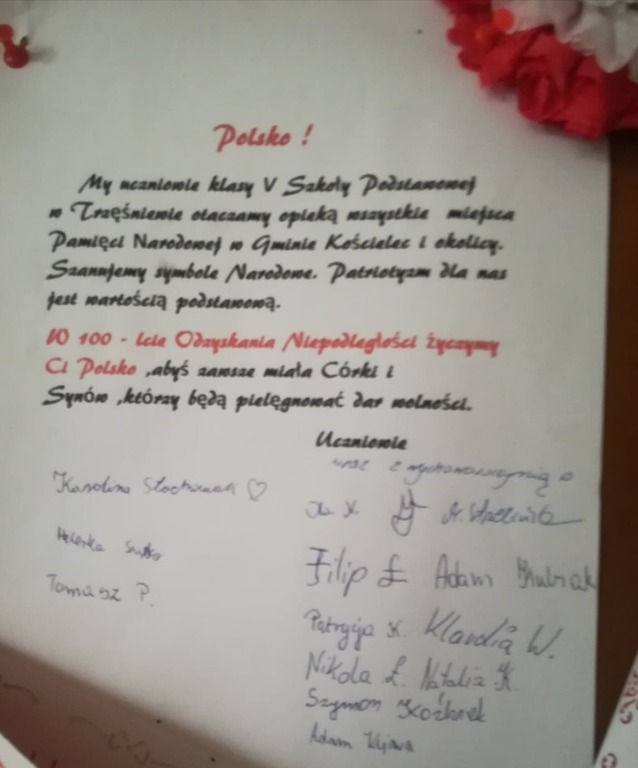 Polsko !
My uczniowie klasy V Szkoły Podstawowej
w Trzęśniewie otaczamy opieką wszystkie miejsca
Pamięci Narodowej w Gminie Kościelec i okolicy.
Szanujemy symbole Narodowe. Patriotyzm dla nas
jest wartością podstawową.
W 100 - lcie Odzyskania Niepodległości życzymy
Ci Polsko ,abyś zawsze miała Córki i
Synów ,którzy będą pielęgnować dar wolności.
Uczniowie
wraz z wychowawczynią
Karolina
Filip Ł Adam Kubiak
Tomasz P.
Patrycja K. Klaudia W.
Nikola Ł. Natalia K.
Szymon
Adam